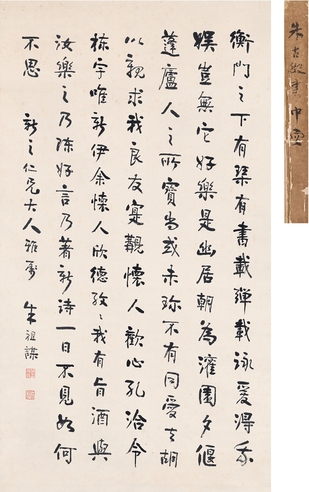 衡門之下有琹有書載彈載詠爰得我
娛豈無它好樂是幽居朝為灌園夕偃
蓬廬人之所寶尚或未珎不有同愛云胡
以親求我良友寔覯懷人歡心孔洽
棟宇唯鄰伊余懷人欣德孜〻我有旨酒與
汝樂之乃陳好言乃著新詩一日不見如何
不思 新之仁兄大人雅屬 朱祖謀
朱古微 中堂